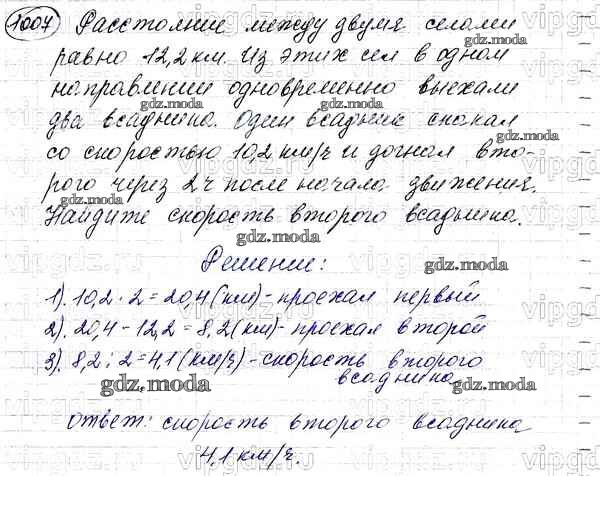 1007 Расстояние между двумя селами
равно 12,2 км. Из этих сел в одном
направлении одновременно выехали
два всадника. Один всадник скакал
со скоростью 10,2 км/ч и догнал вто-
рого через 2ч после начала движения.
Найдите скорость второго всадника.
gdz.moda
Решение:
1). 10,2 · 2 = 20,4 (км) - проехал первый
2). 20,4 - 12,2 = 8,2 (км) - проехал второй
3). 8,2 : 2 = 4,1 (км/ч) - скорость второго
всадника
gdz.moda
Ответ: скорость второго всадника
4,1 км/ч.